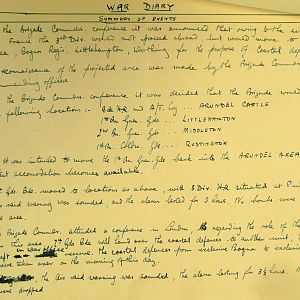 WAR DIARY
SUMMARY OF EVENTS
the Brigade Commdrs. conference it was announced that owing to the si
France the 3rd Div. would not proceed abroad but would move to
ea, Bognor Regis, Littlehampton, Worthing for the purpose of Coastal defe
reconnaissance of the projected area was made by the Brigade Comm
mmanding officers
the Brigade Commdrs conference it was decided that the Brigade would
following locations :- Bde HQ and A/T. Coy ... ARUNDEL CASTLE
1st Bn Gren. Gds ... LITTLEHAMPTON
2nd Bn Gren. Gds. ... MIDDLETON
1st Bn. Coldm. Gds ... RUSTINGTON
It was intended to move the 1st Bn. Gren. Gds back into the ARUNDEL AREA
accomodation becomes available.
Gds. Bde. moved to locations as above, with 3 Div. HQ situated at
raid warning was sounded, and the alarm lasted for 2 hours. No bombs were
area.
Brigade Commdr. attended a conference in London, regarding the role of the
this area. 7th Gds Bde will hand over the coastal defences to another unit,
in reserve. The coastal defences from exclusive Bognor to exclusive
were taken over on the morning of this day.
the air raid warning was sounded, the alarm lasting for 3½ hours.
were dropped